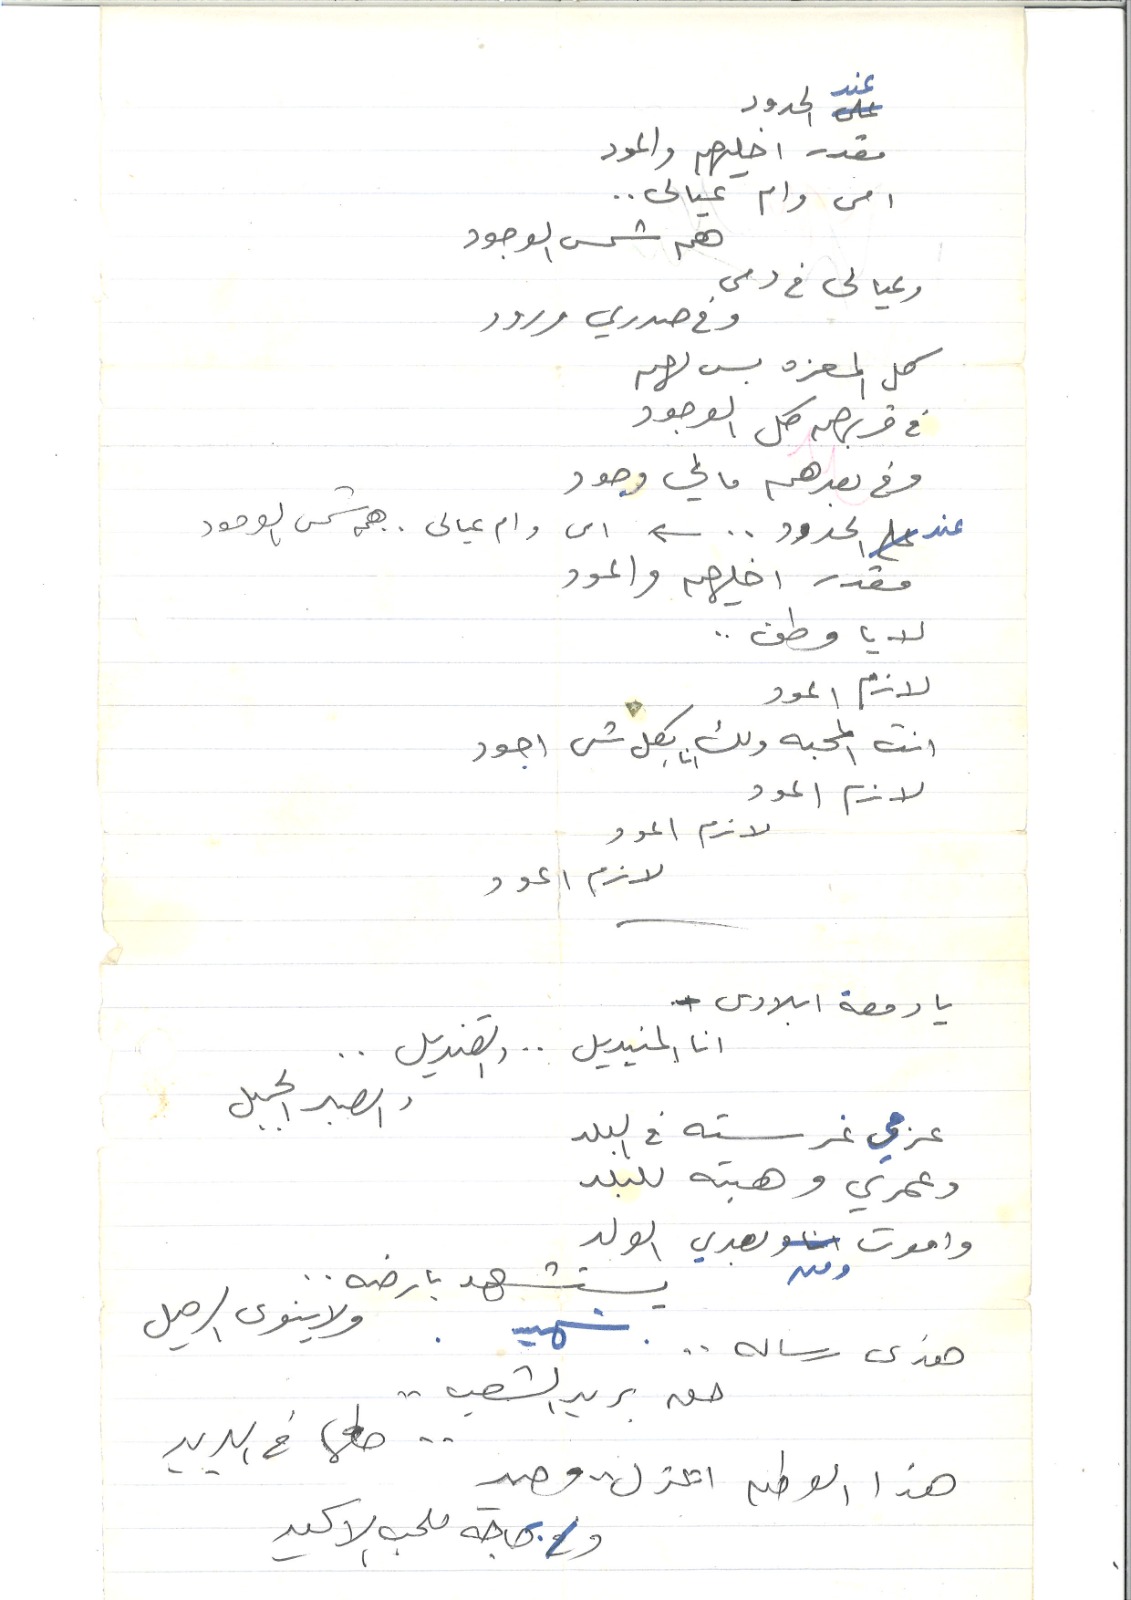 عند
على الحدود
مقدر اخليهم واعود
امي وام عيالي..
هم شمس الوجود
وعيالي في دمي
وفي صدري ورود
كل المعزه بس لهم
في قربهم كل الوجود
وفي بعدهم مالي وجود
عند على الحدود .. ← امي وام عيالي . هم شمس الوجود
مقدر اخليهم واعود
لا يا وطن ..
لازم اعود
انت المحبه ولك انا بكل شي اجود
لازم اعود
لازم اعود
لازم اعود
يا دمعة ابلادي
انا المنيديل .. والقنديل ..
والصبر الجميل
عزمي غرسته في البلد
وعمري وهبته للبلد
واموت انا وبعدي الولد
ومن
يستشهد بارضه ..
ولا ينوي الرحيل
شهيد
هذي رساله ..
من بريد الشعب ..
.. في البريد
هذا الوطن
وبحاجة للحب الاكيد